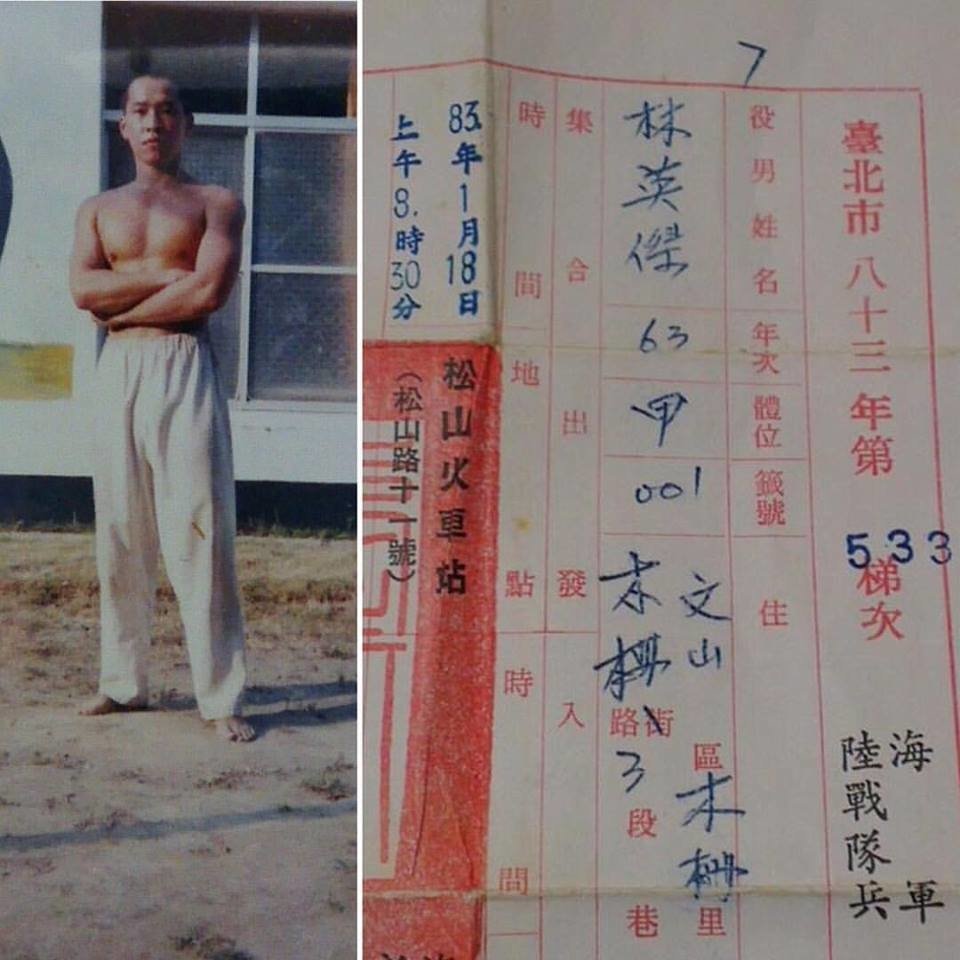 7
臺北市八十三年第533梯次
海軍
陸戰隊兵
役男姓名
林英傑
年次
63
體位
甲
籤號
001
住
文山區木柵里
木柵路街3段巷
集合出發入
時間
83年1月18日
上午8時30分
地點
松山火車站
(松山路十一號)
時間